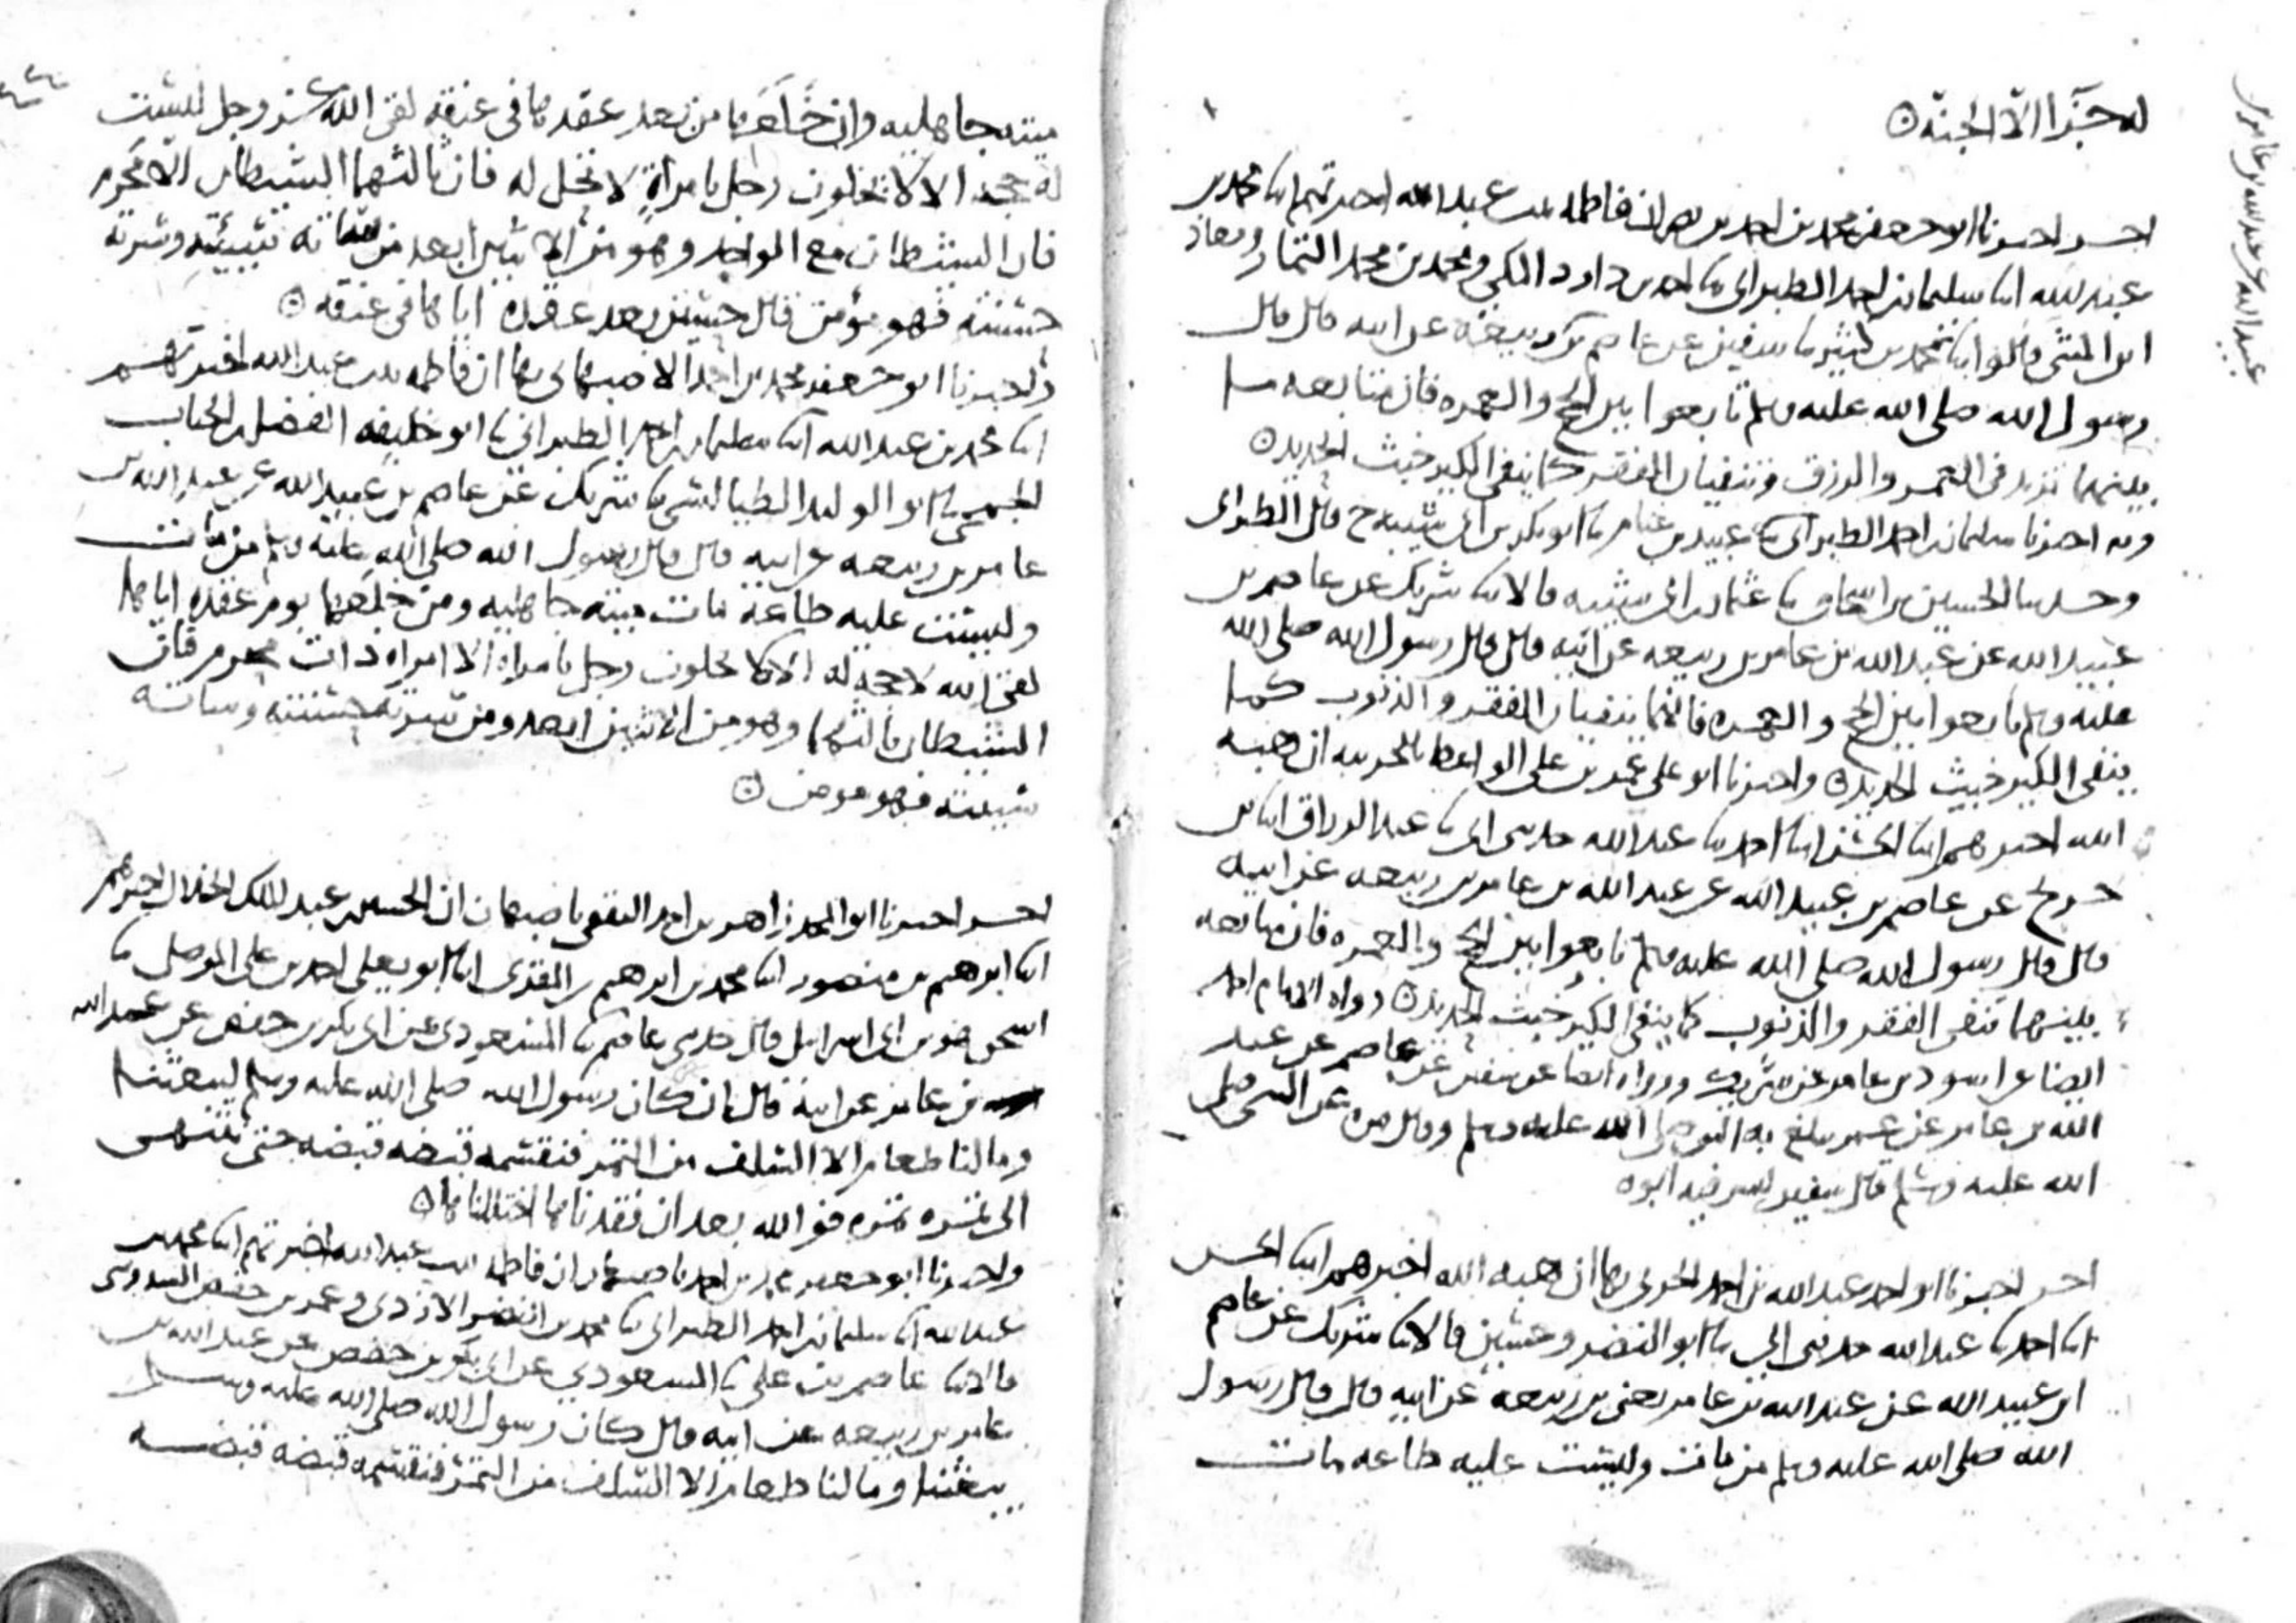 له جزاء الا الجنة ۞
اخر اخبرنا ابو جعفر محمد بن احمد بن نصر ان فاطمه بنت عبد الله اخبرتهم ابنا محمد بن
عبد الله ابنا سليمان بن احمد الطبراني بنا احمد بن داود المكي ومحمد بن محمد التمار ومعاذ
ابن المثنى قالوا ابنا محمد بن كثير بنا سفين عن عاصم عن ابيه قال قال
رسول الله صلى الله عليه وسلم تابعوا بين الحج والعمره فان متابعه ما
بينهما تزيد في العمر والرزق وتنفيان الفقر كما ينفي الكير خبث الحديد ۞
وبه اخبرنا سليمان بن احمد الطبراني بنا عبيد بن غنام بنا ابو بكر بن ابي شيبه ح قال الطبراني
وحدثنا الحسين بن اسحاق بنا عثمان بن ابي شيبه قالا بنا شريك عن عاصم بن
عبيد الله عن عبد الله بن عامر بن ربيعه عن ابيه قال قال رسول الله صلى الله
عليه وسلم تابعوا بين الحج والعمره فانهما ينفيان الفقر والذنوب كما
ينفي الكير خبث الحديد ۞ واخبرنا ابو علي عمر بن علي الواعظ بالحربيه ان هبه
الله اخبرهم ابنا الحسن ابنا احمد بنا عبد الله حدثني ابي بنا عبد الرزاق ابنا بن
جريج عن عاصم بن عبيد الله عن عبد الله بن عامر بن ربيعه عن ابيه
قال قال رسول الله صلى الله عليه وسلم تابعوا بين الحج والعمره فان متابعه
بينهما تنفي الفقر والذنوب كما ينفي الكير خبث الحديد ۞ رواه الامام احمد
ايضا عن اسود بن عامر عن شريك ورواه ايضا عن سفين عن عاصم عن عبد
الله بن عامر عن عمر يبلغ به النبي صلى الله عليه وسلم وقال مره عن النبي صلى
الله عليه وسلم قال سفين ليس فيه ابوه
اخر اخبرنا ابو احمد عبد الله بن احمد الحربي بها ان هبه الله اخبرهم ابنا الحسن
ابنا احمد بنا عبد الله حدثني ابي بنا ابو النضر وحسين قالا بنا شريك عن عاصم
ابن عبيد الله عن عبد الله بن عامر يعني بن ربيعه عن ابيه قال قال رسول
الله صلى الله عليه وسلم من مات وليست عليه طاعه مات
عبيد الله عن عبد الله بن عامر
ميته جاهليه وان خلعها من بعد عقدها في عنقه لقى الله عز وجل ليست
له حجه الا لا يخلون رجل بامراة لا تحل له فان ثالثهما الشيطان الا محرم
فان الشيطان مع الواحد وهو من الاثنين ابعد من ساته سيئته وسرته
حسنته فهو مؤمن قال حسين بعد عقده اياها في عنقه ۞
واخبرنا ابو جعفر محمد بن احمد الاصبهاني بها ان فاطمه بنت عبد الله اخبرتهم
ابنا محمد بن عبد الله ابنا سليمان بن احمد الطبراني بنا ابو خليفه الفضل بن الحباب
الجمحي بنا ابو الوليد الطيالسي بنا شريك عن عاصم بن عبيد الله عن عبد الله بن
عامر بن ربيعه عن ابيه قال قال رسول الله صلى الله عليه وسلم من مات
وليست عليه طاعة مات ميته جاهليه ومن خلعها يوم عقده اياها
لقى الله لا حجه له الا لا يخلون رجل بامراه الا امراه ذات محرم فان
الشيطان ثالثهما وهو من الاثنين ابعد ومن سرته حسنته وساته
سيئته فهو مومن ۞
اخر اخبرنا ابو المجد زاهر بن احمد الثقفي باصبهان ان الحسين بن عبد الملك الخلال اخبرهم
ابنا ابرهيم بن منصور ابنا محمد بن ابرهيم بن المقرى ابنا ابو يعلى احمد بن علي الموصلي بنا
اسحق هو بن ابي اسرايل قال حدثني عاصم بنا المسعودي عن ابي بكر بن حفص عن عبد الله
بن عامر عن ابيه قال ان كان رسول الله صلى الله عليه وسلم ليبعثنا
وما لنا طعام الا السلف من التمر فنقسمه قبضه قبضه حتى ننتهى
الى تمره تمره فوالله بعد ان فقدناها اختللناها ۞
واخبرنا ابو جعفر محمد بن احمد باصبهان ان فاطمه بنت عبد الله اخبرتهم ابنا محمد بن
عبد الله ابنا سليمان بن احمد الطبراني بنا محمد بن النضر الازدي وعمر بن حفص السدوسي
قالا بنا عاصم بن علي بنا المسعودي عن ابي بكر بن حفص عن عبد الله بن
عامر بن ربيعه عن ابيه قال كان رسول الله صلى الله عليه وسلم
يبعثنا وما لنا طعام الا السلف من التمر فنقسمه قبضه قبضه